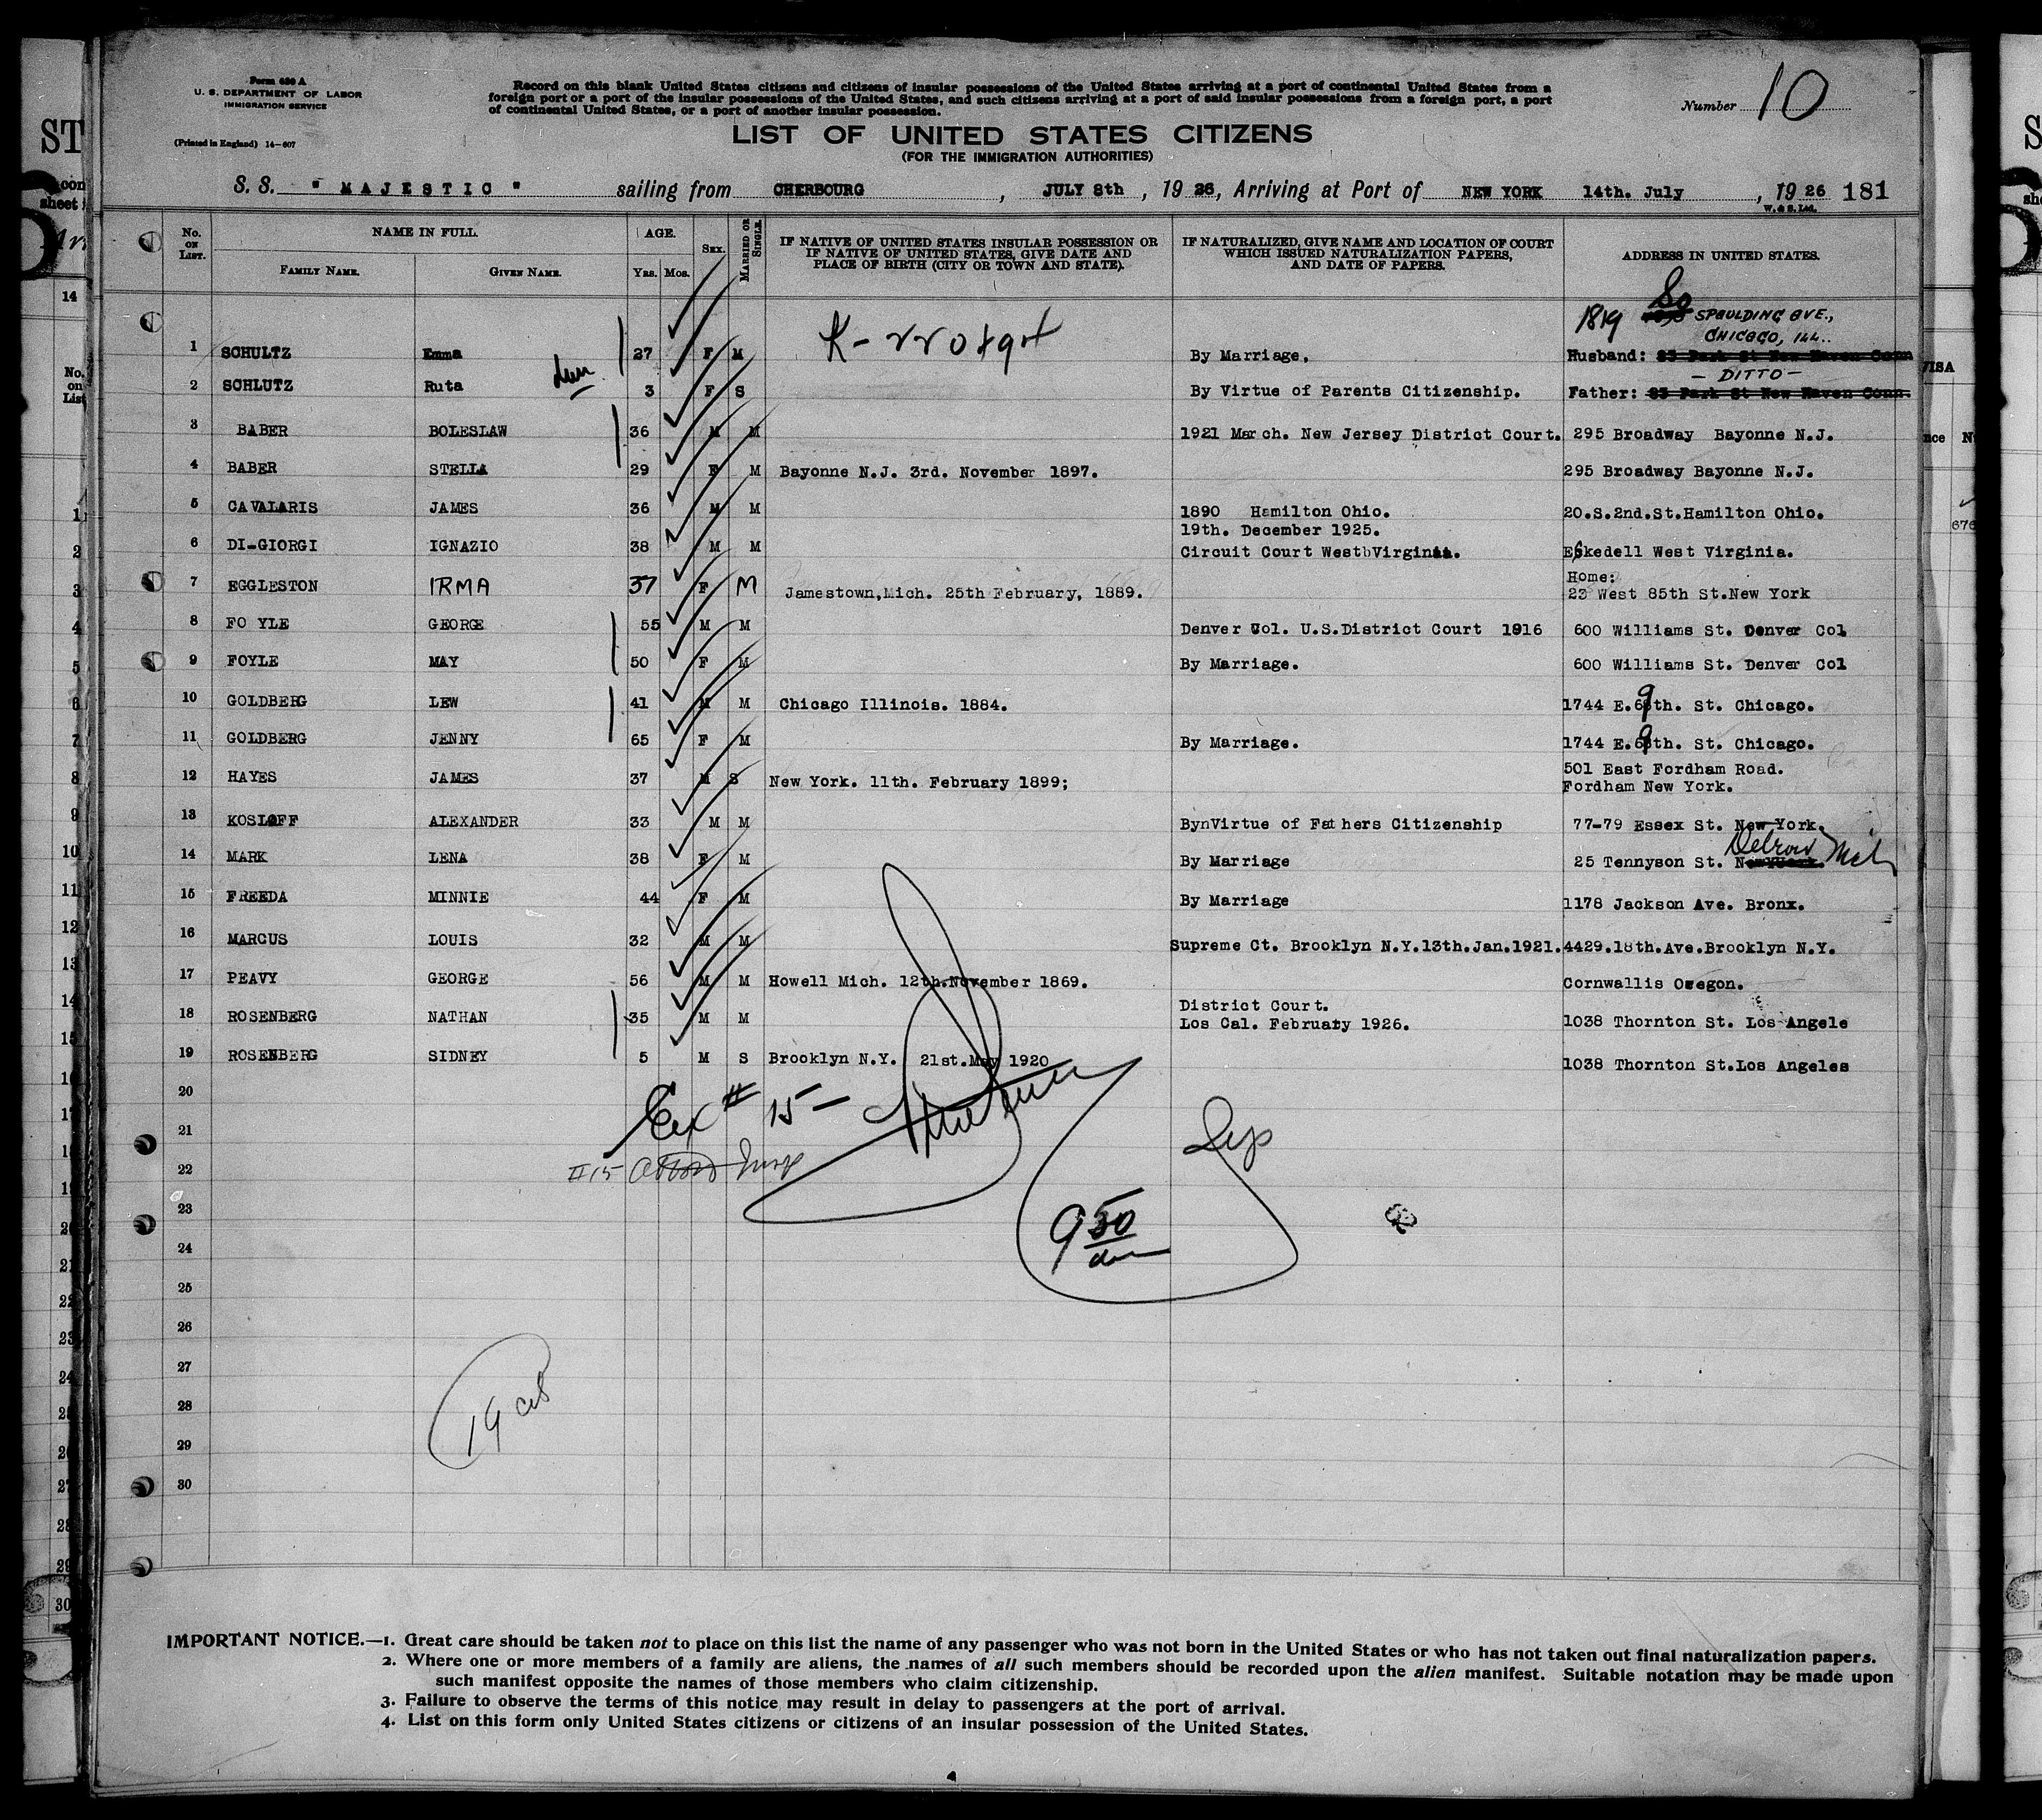 Form 630 A
U. S. DEPARTMENT OF LABOR
IMMIGRATION SERVICE
(Printed in England) 14—607
Record on this blank United States citizens and citizens of insular possessions of the United States arriving at a port of continental United States from a
foreign port or a port of the insular possessions of the United States, and such citizens arriving at a port of said insular possessions from a foreign port, a port
of continental United States, or a port of another insular possession.
Number 10
LIST OF UNITED STATES CITIZENS
(FOR THE IMMIGRATION AUTHORITIES)
S. S. " MAJESTIC " sailing from CHERBOURG, JULY 8th, 19 26, Arriving at Port of NEW YORK 14th. July, 19 26 181
W. & S. Ltd.
No. ON LIST. NAME IN FULL. AGE. SEX. MARRIED OR SINGLE. IF NATIVE OF UNITED STATES INSULAR POSSESSION OR IF NATIVE OF UNITED STATES, GIVE DATE AND PLACE OF BIRTH (CITY OR TOWN AND STATE). IF NATURALIZED, GIVE NAME AND LOCATION OF COURT WHICH ISSUED NATURALIZATION PAPERS, AND DATE OF PAPERS. ADDRESS IN UNITED STATES.
FAMILY NAME. GIVEN NAME. YRS. MOS.
1819 So SPAULDING AVE.,
CHICAGO, ILL..
1 SCHULTZ Emma 27 F M By Marriage, Husband: 83 Park St New Haven Conn
— DITTO —
2 SCHLUTZ Ruta 3 F S By Virtue of Parents Citizenship. Father: 83 Park St New Haven Conn.
3 BABER BOLESLAW 36 M M 1921 March. New Jersey District Court. 295 Broadway Bayonne N.J.
4 BABER STELLA 29 F M Bayonne N.J. 3rd. November 1897. 295 Broadway Bayonne N.J.
5 CAVALARIS JAMES 36 M M 1890 Hamilton Ohio. 20.S.2nd.St.Hamilton Ohio.
19th. December 1925.
6 DI-GIORGI IGNAZIO 38 M M Circuit Court WestbVirginia. Eskedell West Virginia.
Home:
7 EGGLESTON IRMA 37 F M Jamestown,Mich. 25th February, 1889. 23 West 85th St.New York
8 FO YLE GEORGE 55 M M Denver Col. U.S.District Court 1916 600 Williams St. Denver Col
9 FOYLE MAY 50 F M By Marriage. 600 Williams St. Denver Col
10 GOLDBERG LEW 41 M M Chicago Illinois. 1884. 1744 E.69th. St. Chicago.
11 GOLDBERG JENNY 65 F M By Marriage. 1744 E.69th. St. Chicago.
501 East Fordham Road.
12 HAYES JAMES 37 M S New York. 11th. February 1899; Fordham New York.
13 KOSLOFF ALEXANDER 33 M M BynVirtue of Fathers Citizenship 77-79 Essex St. New York.
14 MARK LENA 38 F M By Marriage 25 Tennyson St. New York. Detroit Mich
15 FREEDA MINNIE 44 F M By Marriage 1178 Jackson Ave. Bronx.
16 MARCUS LOUIS 32 M M Supreme Ct. Brooklyn N.Y.13th.Jan.1921. 4429.18th.Ave.Brooklyn N.Y.
17 PEAVY GEORGE 56 M M Howell Mich. 12th.November 1869. Cornwallis Oregon.
District Court.
18 ROSENBERG NATHAN 35 M M Los Cal. February 1926. 1038 Thornton St. Los Angele
19 ROSENBERG SIDNEY 5 M S Brooklyn N.Y. 21st.May 1920 1038 Thornton St.Los Angeles
20
Ex # 15 —
21
22 #15
23
9 50
24
25
26
27
28
19
29
30
IMPORTANT NOTICE.—1. Great care should be taken not to place on this list the name of any passenger who was not born in the United States or who has not taken out final naturalization papers.
2. Where one or more members of a family are aliens, the names of all such members should be recorded upon the alien manifest. Suitable notation may be made upon
such manifest opposite the names of those members who claim citizenship.
3. Failure to observe the terms of this notice may result in delay to passengers at the port of arrival.
4. List on this form only United States citizens or citizens of an insular possession of the United States.